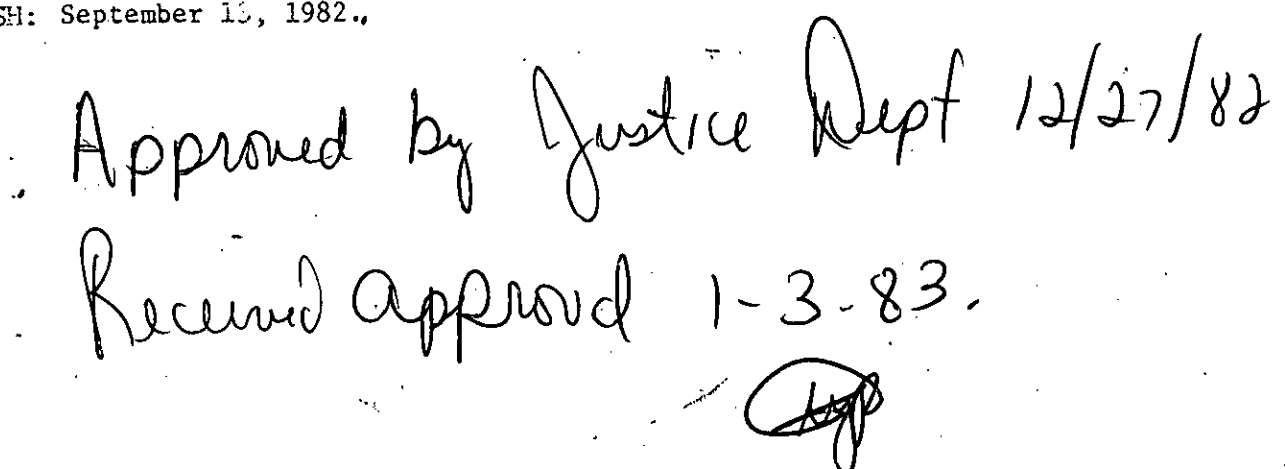 SH: September 13, 1982.,
Approved by Justice Dept 12/27/82
Received approvd 1-3-83.